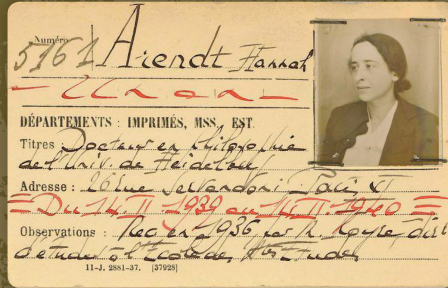 Numéro
5161 Arendt Hannah
DÉPARTEMENTS : IMPRIMÉS, MSS, EST.
Titres Docteur en philosophie
de l'Univ. de Heidelberg
Adresse : rue Servandoni Paris
Du 14 II 1939 au 14 II. 1940
Observations : Rec en 1936 par
11-J. 2881-37. [37928]